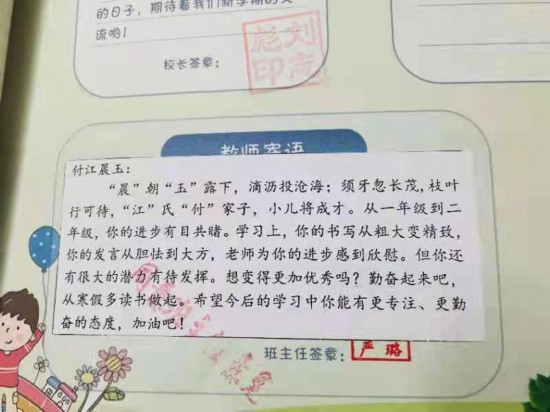 的日子，期待着我们新学期的交
流哟！
校长签章：
教师寄语
付江晨玉：
“晨”朝“玉”露下，滴沥投沧海；须牙忽长茂，枝叶
行可待，“江”氏“付”家子，小儿将成才。从一年级到二
年级，你的进步有目共睹。学习上，你的书写从粗大变精致，
你的发言从胆怯到大方，老师为你的进步感到欣慰。但你还
有很大的潜力有待发挥。想变得更加优秀吗？勤奋起来吧，
从寒假多读书做起。希望今后的学习中你能有更专注、更勤
奋的态度，加油吧！
班主任签章：
严璐